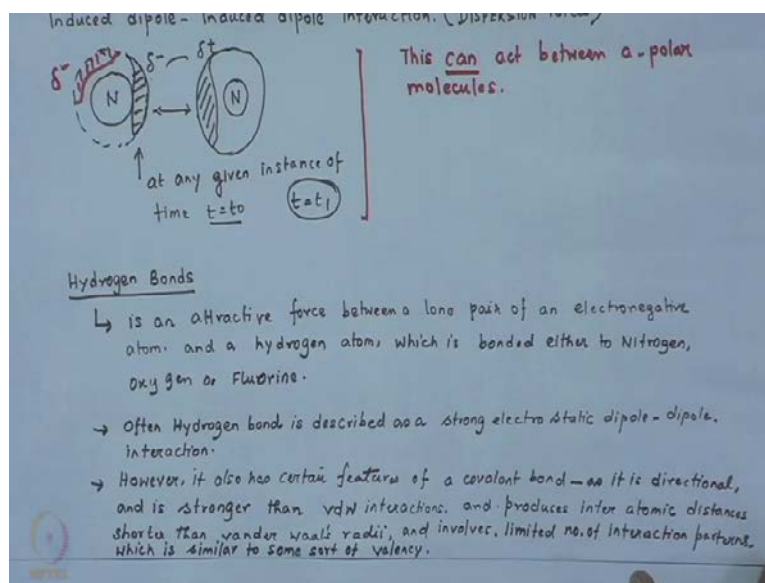 Induced dipole - Induced dipole interaction. (DISPERSION FORCES)
δ- δ- δ+ This can act between a-polar
N N molecules.
at any given instance of
time t=t0 t=t1
Hydrogen Bonds
↳ is an attractive force between a lone pair of an electronegative
atom. and a hydrogen atom, which is bonded either to Nitrogen,
oxygen or Fluorine.
→ Often Hydrogen bond is described as a strong electrostatic dipole-dipole.
interaction.
→ However, it also has certain features of a covalent bond - as it is directional,
and is stronger than vdw interactions. and produces inter atomic distances
shorter than vander waal's radii, and involves. limited no. of interaction partners.
which is similar to some sort of valency.
NPTEL